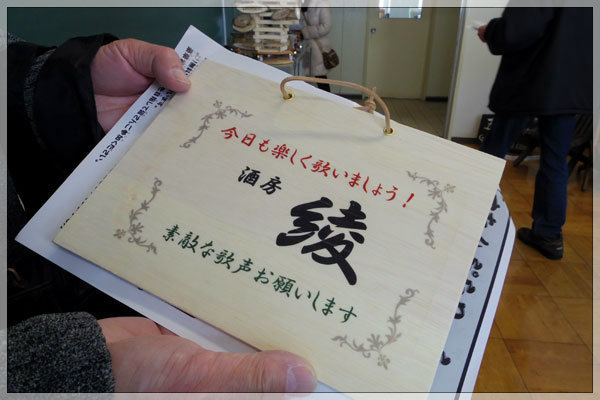 今日も楽しく歌いましょう！
酒房
綾
素敵な歌声お願いします